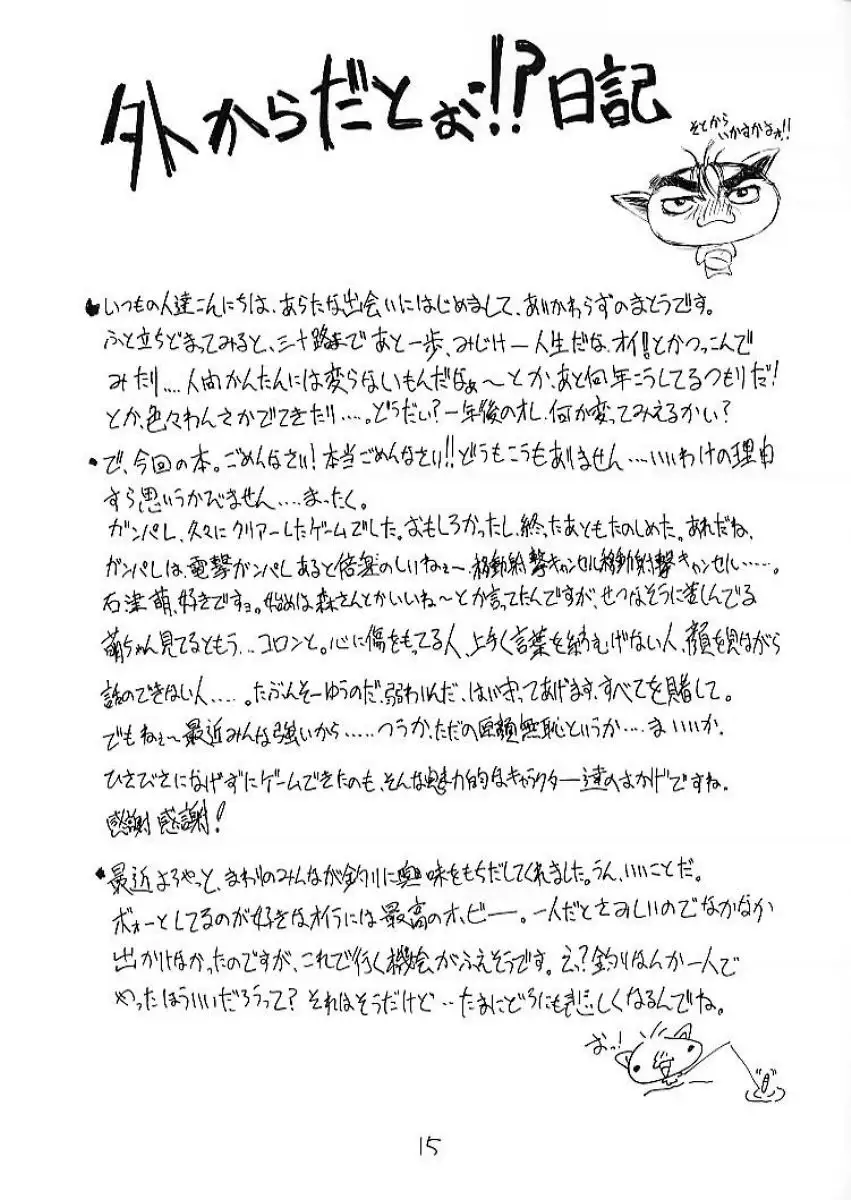 外からだとぉ!!?日記
そとから
いかすかよぉ!!
●いつもの人達こんにちは、あらたな出会いにはじめまして、あいかわらずのまとうです。
ふと立ちどまってみると、三十路まであと一歩、みじけー人生だな、オイ!とかつっこんで
みたり....人間かんたんには変らないもんだなぁ〜とか、あと何年こうしてるつもりだ!
とか、色々わんさかでてきたり....。どうだい?一年後のオレ、何か変ってみえるかい?
・で、今回の本。ごめんなさい!本当ごめんなさい!!どうもこうもありません...いいわけの理由
すら思いうかびません....まったく。
ガンパレ、久々にクリアーしたゲームでした。おもしろかったし、終ったあともたのしめた。あれだね、
ガンパレは、電撃ガンパレあると倍楽のしいねぇ〜、移動射撃キャンセル移動射撃キャンセル.....。
石津萌、好きですョ。始めは森さんとかいいね〜とか言ってたんですが、せつなそうに並んでる
萌ちゃん見てるともう...コロンと。心に傷をもってる人、上手く言葉を紡むげない人、顔を見ながら
話のできない人.....。たぶんそーゆうのだ、弱わいんだ、はい守ってあげます、すべてを賭して。
でもねぇ〜最近みんな強いから.....つうか、ただの厚顔無恥というか....まいいか。
ひさびさになげずにゲームできたのも、そんな魅力的なキャラクター達のおかげですね。
感謝感謝!
・最近ようやっと、まわりのみんなが釣りに興味をもちだしてくれました。うん、いいことだ。
ボォーとしてるのが好きなオイラには最高のホビー。一人だとさみしいのでなかなか
出かけなかったのですが、これで行く機会がふえそうです。え?釣りなんか一人で
やったほういいだろうって?それはそうだけど..たまにどうにも悲しくなるんでね。
おっ!
15